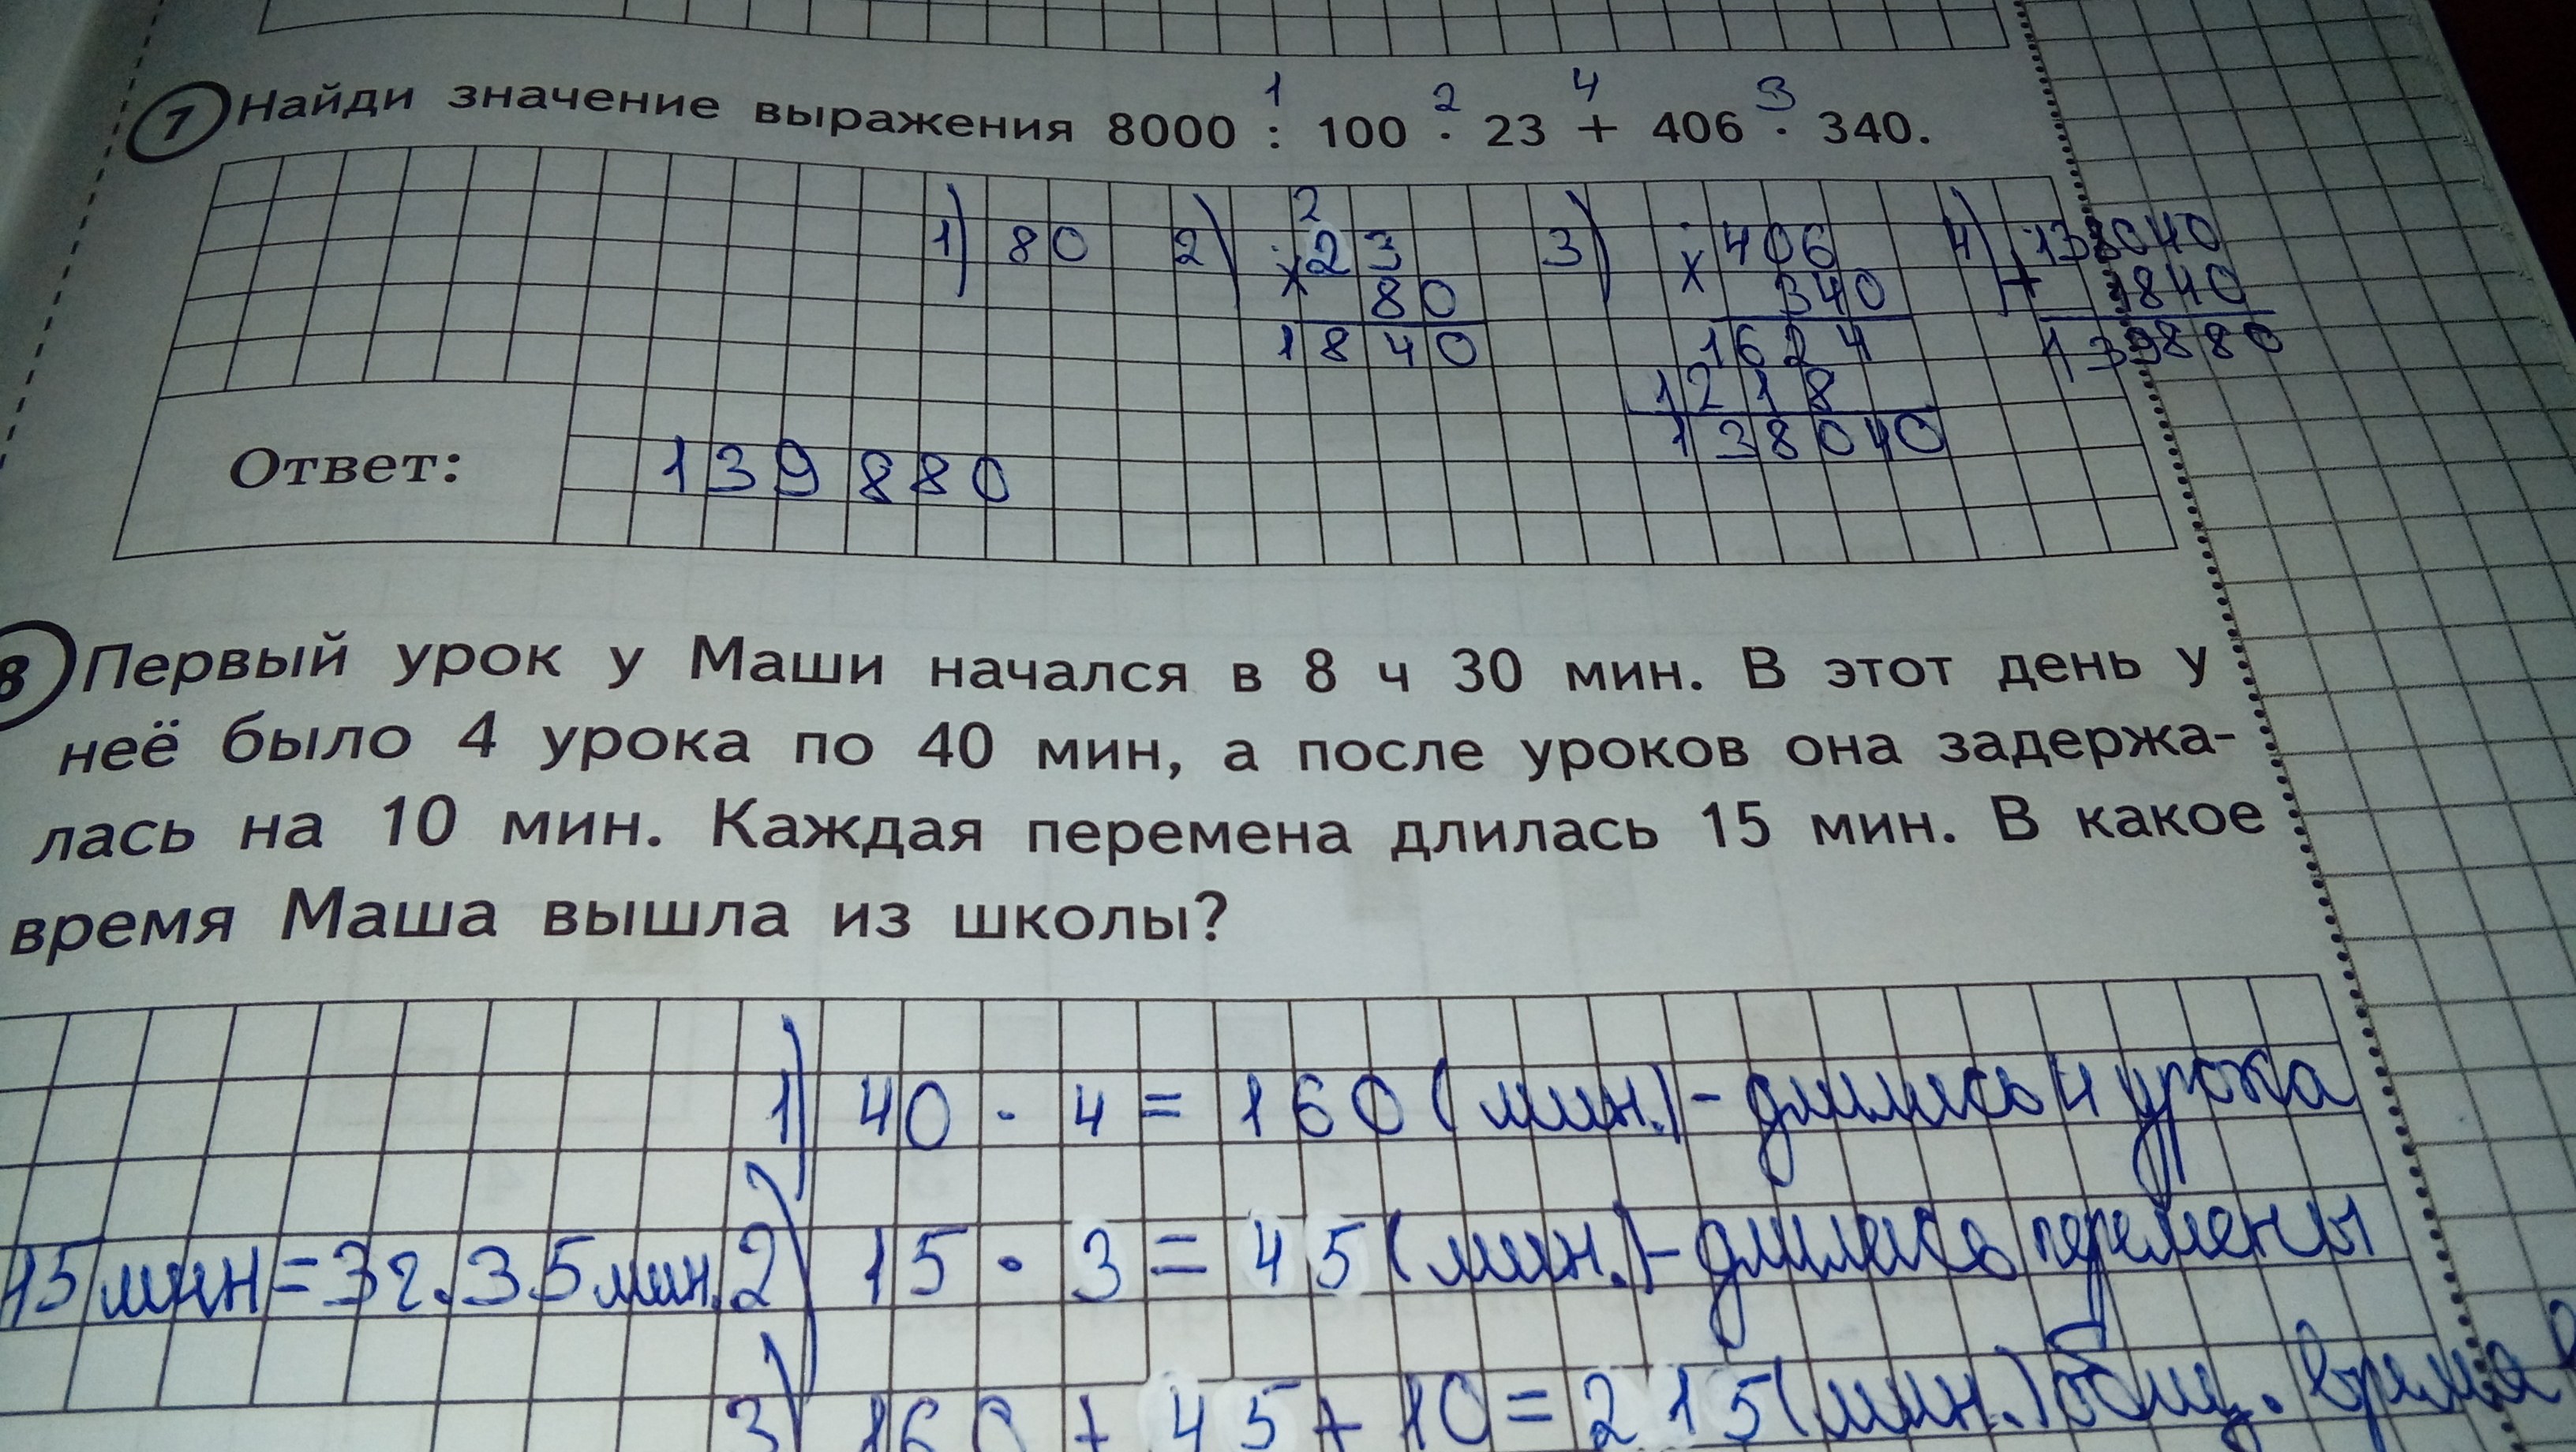 7 Найди значение выражения 8000 : 100 · 23 + 406 · 340.
1 2 4 3
1) 80
2) 2
× 23
80
1840
3) × 406
340
1624
1218
138040
4) 138040
+ 1840
139880
Ответ: 139880
8 Первый урок у Маши начался в 8 ч 30 мин. В этот день у
неё было 4 урока по 40 мин, а после уроков она задержа-
лась на 10 мин. Каждая перемена длилась 15 мин. В какое
время Маша вышла из школы?
1) 40 · 4 = 160 (мин.) - длились 4 урока
15 мин = 3 г. 35 мин. 2) 15 · 3 = 45 (мин.) - длились перемены
3) 160 + 45 + 10 = 215 (мин.) общ. время